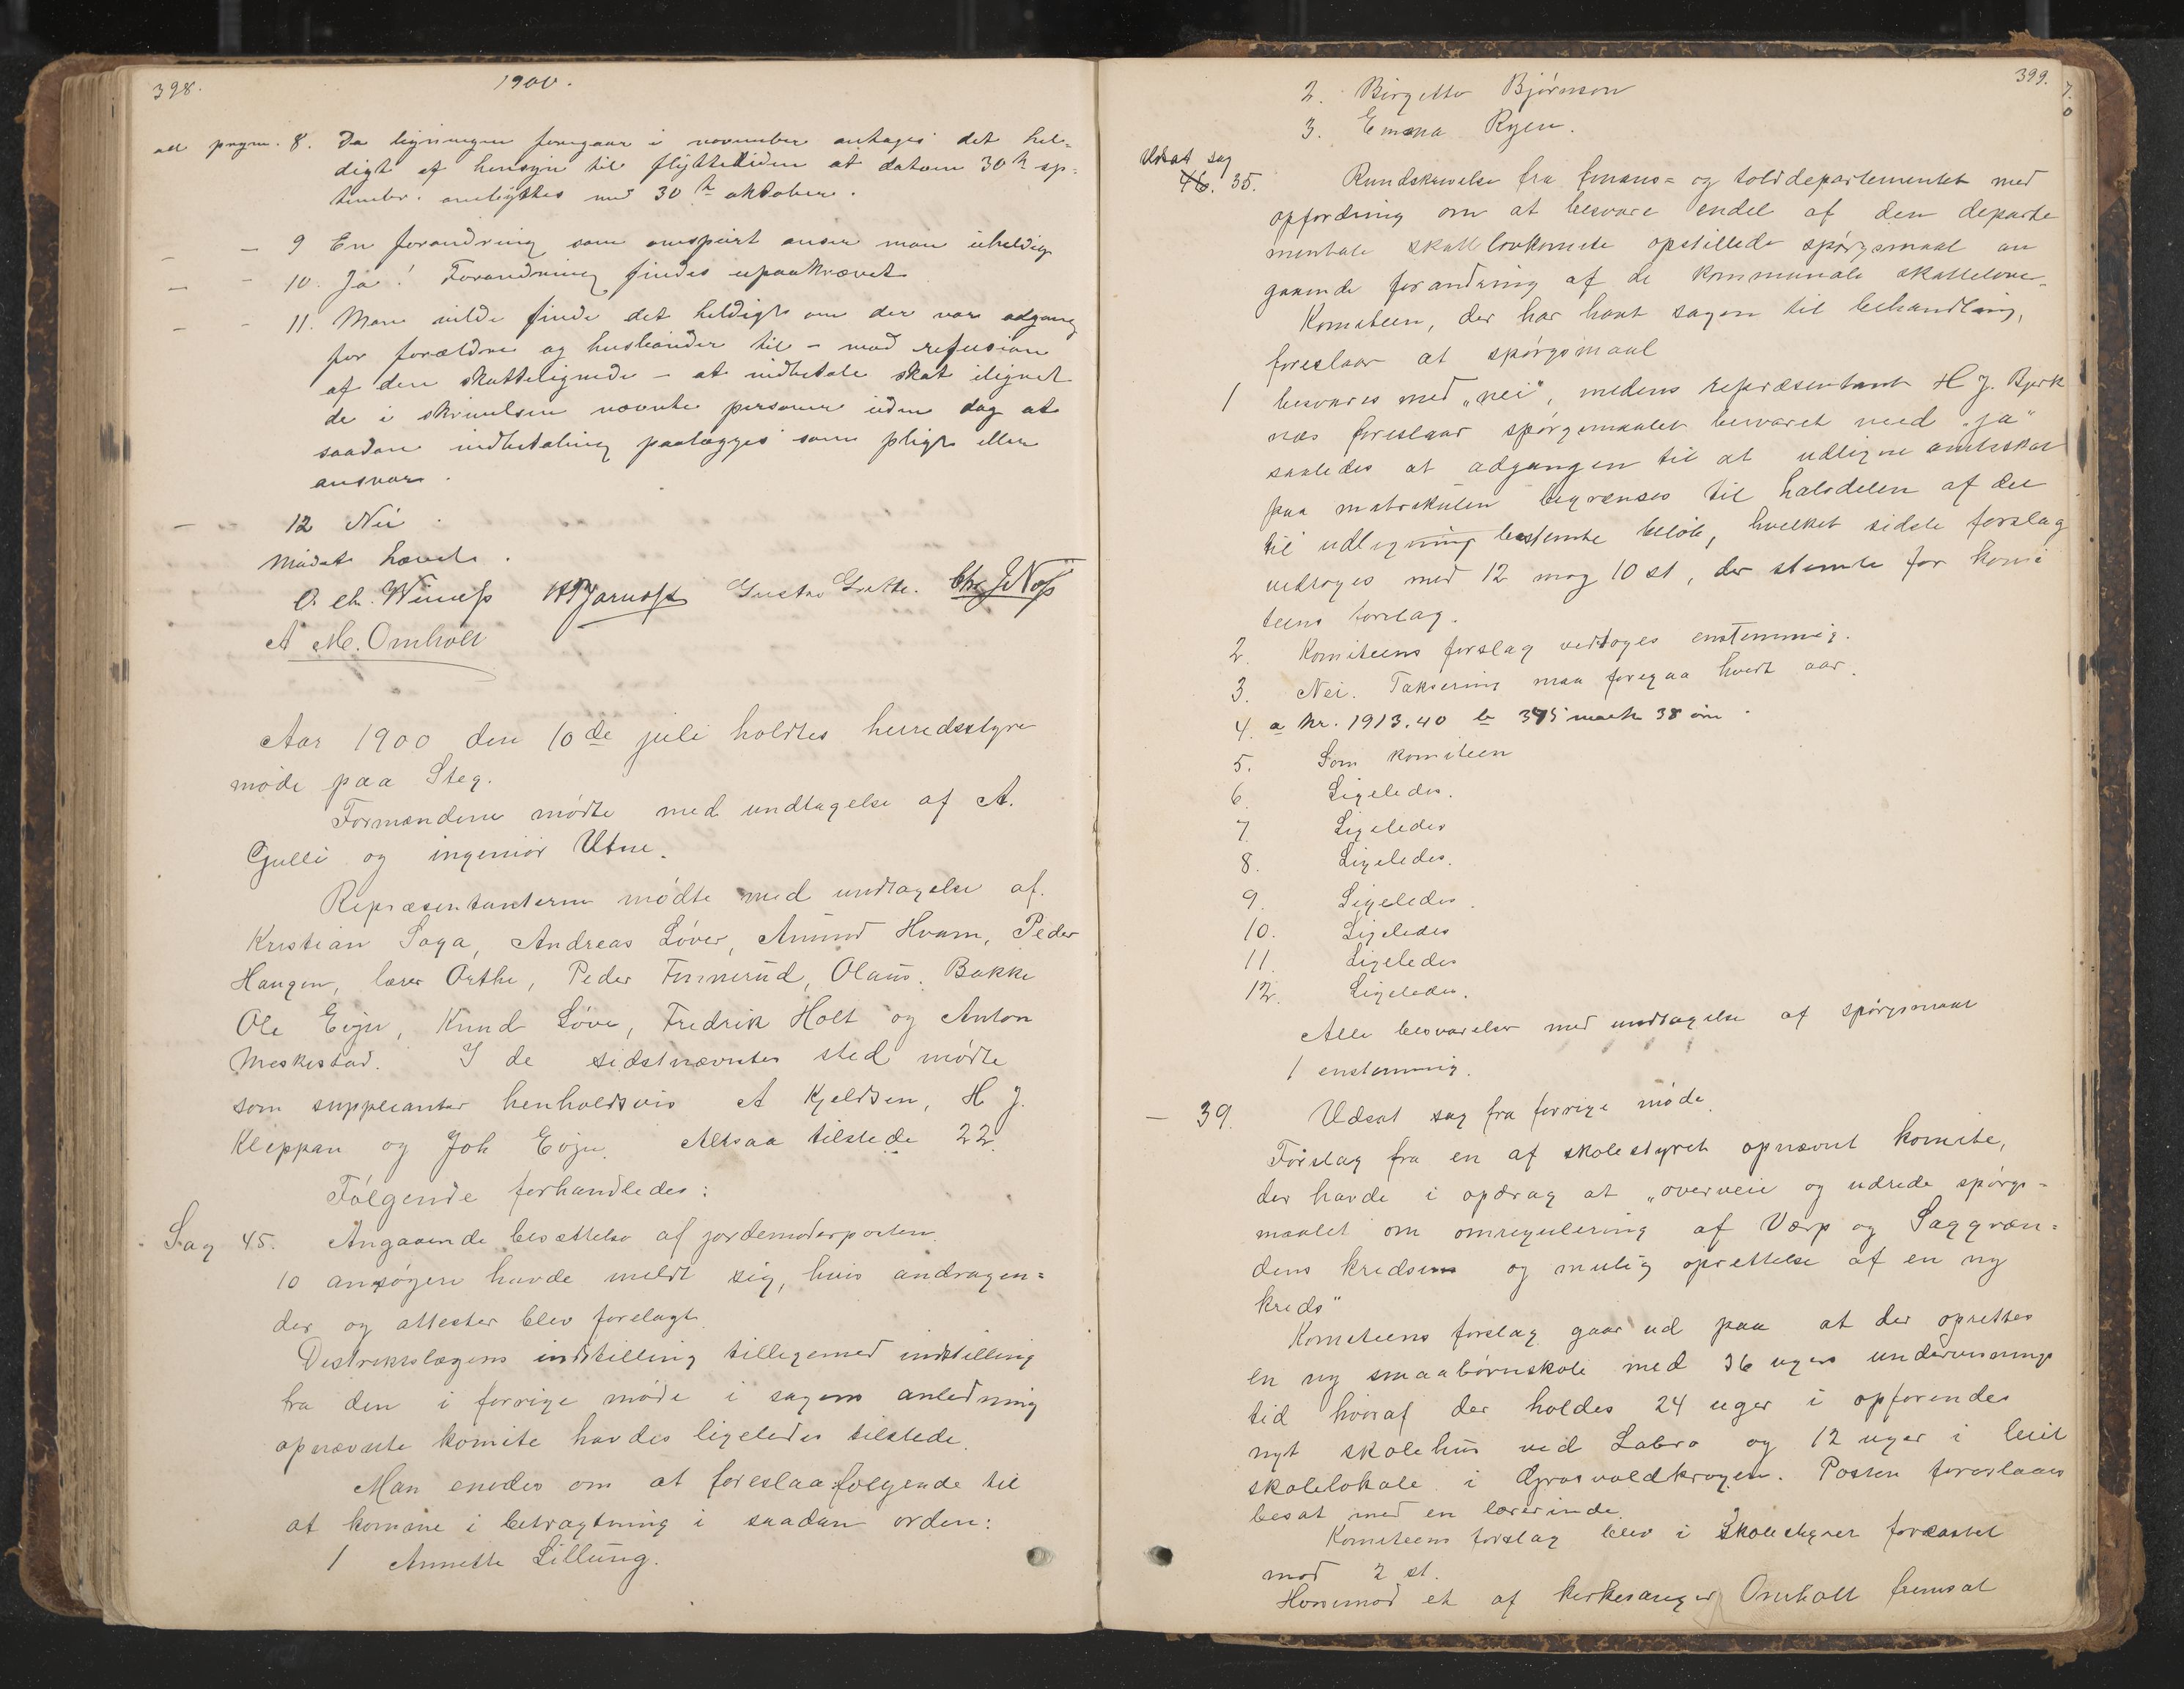 398.
1900.
ad prgm. 8. Da ligningen foregaar i november antages det hel=
digt af hensyn til flyttetiden at datum 30te sp=
tember. ombyttes med 30te oktober.
— — 9 En forandring som omspurt anser man uheldig
— - 10. Ja! Forandring findes upaakrævet
— - 11. Man vilde finde det heldigt om der var adgang
for forældre og husbonder til – mod refusion
af den skattelignede – at indbetale skat ilignet
de i skrivelsen nævnte personer uden dog at
saadan indbetaling paalægges som pligt eller
ansvar.
— - - 12 Nei.
Mødet hævet.
O. Chr. Gustav Chr. J Næss
A M. Omholt
Aar 1900 den 10de juli holdtes herredsstyre
møde paa Steg.
Formændene mødte med undtagelse af A.
Gulli og ingeniør Utne.
Repræsentanterne mødte med undtagelse af.
Kristian Saga, Andreas Løver, Amund Hvam, Peder
Haugen, lærer Peder Olaus Bakke
Ole Evju, Knud Løve, Fredrik Holt og Anton
Meskestad. I de sidstnævntes sted mødte
som suppleanter henholdsvis A Kjeldsen, H J.
Kleppan og Joh Evju. Altsaa tilstede 22.
Følgende forhandledes:
Sag 45. Angaaende besættelse af jordemoderposten.
10 ansøgere havde meldt sig, hvis andragen=
der og attester blev forelagt.
Distriktslægens indstilling tilligemed indstilling
fra den i forrige møde i sagens anledning
opnævnte komite havdes ligeledes tilstede.
Man enedes om at foreslaa følgende til
at komme i betragtning i saadan orden:
1 Annette Lillung.
399.
2. Birgette Bjørnson
3. Emma Ryen.
Udsat sag
46. 35. Rundskrivelse fra finans= og tolddepartementet med
opfordring om at besvare endel af den departe
mentale skattelovkomite opstillede spørgsmaal an
gaaende forandring af de kommunale skattelove.
Komiteen, der har havt sagen til behandling,
foreslaar at spørgsmaal
1 besvares med „nei", medens repræsentant H J. Bjerk
næs foreslaar spørgsmaalet besvaret med „ja"
saaledes at adgangen til at udligne amtsskat
paa matrikulen begrænses til halvdelen af det
til udligning bestemte beløb, hvilket sidste forslag
vedtoges med 12 mog 10 st, der stemte for komi
teens forslag.
2. Komiteens forslag vedtoges enstemmig.
3. Nei. Taksering maa foregaa hvert aar.
4. a kr. 1913.40 b 375 mark 38 øre.
5. Som komiteen
6. Ligeledes.
7. Ligeledes
8. Ligeledes.
9. Ligeledes.
10. Ligeledes
11. Ligeledes
12. Ligeledes.
Alle besvarelser med undtagelse af spørgsmaal
1 enstemmig.
— 39. Udsat sag fra forrige møde.
Forslag fra en af skolestyret opnævnt komite,
der havde i opdrag at „overveie og udrede spørgs=
maalet om omregulering af Værp og Saggræn=
dens kredsene og mulig oprettelse af en ny
kreds"
Komiteens forslag gaar ud paa at der oprettes
en ny smaabørnskole med 36 ugers undervisnings
tid hvoraf der holdes 24 uger i opførendes
nyt skolehus ved Labro og 12 uger i leiet
skolelokale i Græsvoldkrogen. Posten foreslaaes
besat med en lærerinde.
Komiteens forslag blev i Skolestyret forkastet
mod 2 st.
Hvorimod et af kirkesanger Omholt fremsat